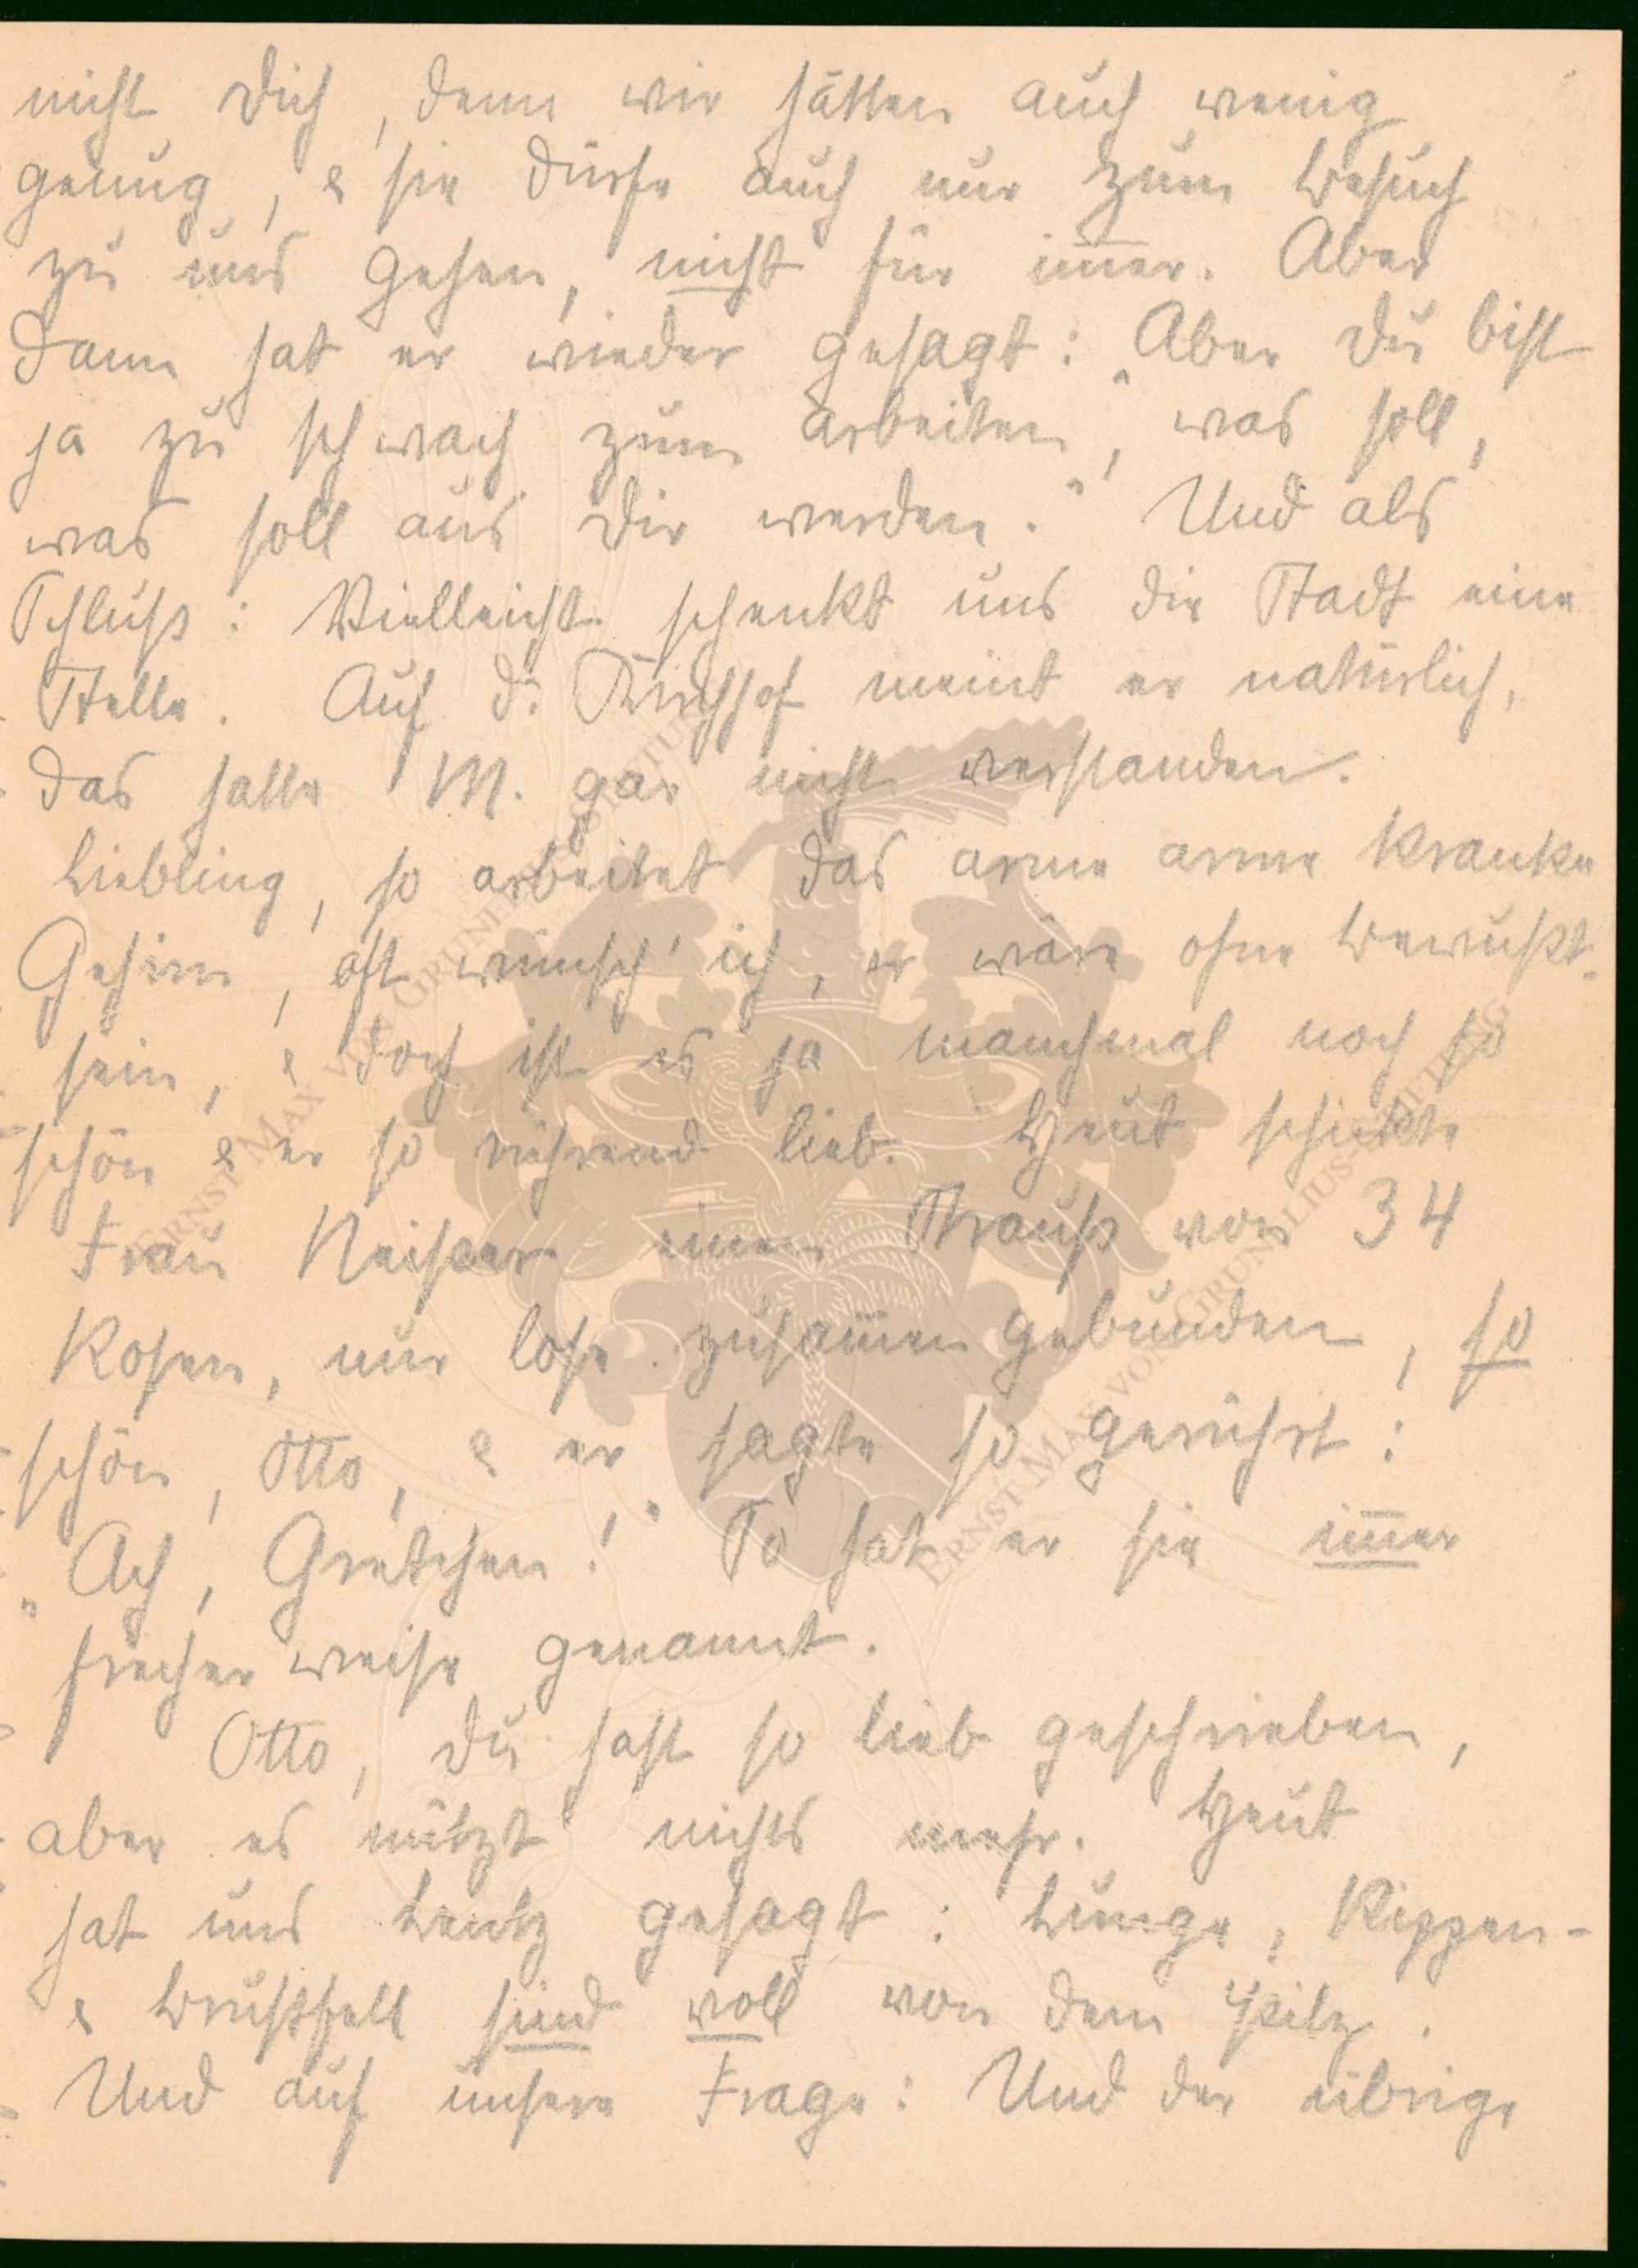 nicht Dich, denn wir hätten auch wenig
genug, & sie dürfe auch nur zum Besuch
zu uns gehen, nicht für im̅er. Aber
dann hat er wieder gesagt: „Aber Du bist
ja zu schwach zum arbeiten, was soll,
was soll aus Dir werden.“ Und als
Schluß: Vielleicht schenkt uns die Stadt eine
Stelle. Auf d. Kirchhof meint er natürlich,
das hatte M. gar nicht verstanden.
Liebling, so arbeitet das arme arme kranke
Gehirn, oft wünsch' ich, er wäre ohne Bewußt-
sein, & doch ist es ja manchmal noch so
schön & er so rührend lieb. Heut schickte
Frau Neisser einen Strauß von 34
Rosen, nur lose zusam̅en gebunden, so
schön, Otto, & er sagte so gerührt:
„Ach, Gretchen!“ So hat er sie im̅er
frecher weise genannt.
Otto, Du hast so lieb geschrieben,
aber es nützt nichts mehr. Heut
hat uns Lentz gesagt: Lunge, Rippen-
& Brustfell sind voll von dem Pilz.
Und auf unsere Frage: Und der übrige
ERNST MAX VON GRUNELIUS-STIFTUNG
ERNST MAX VON GRUNELIUS-STIFTUNG